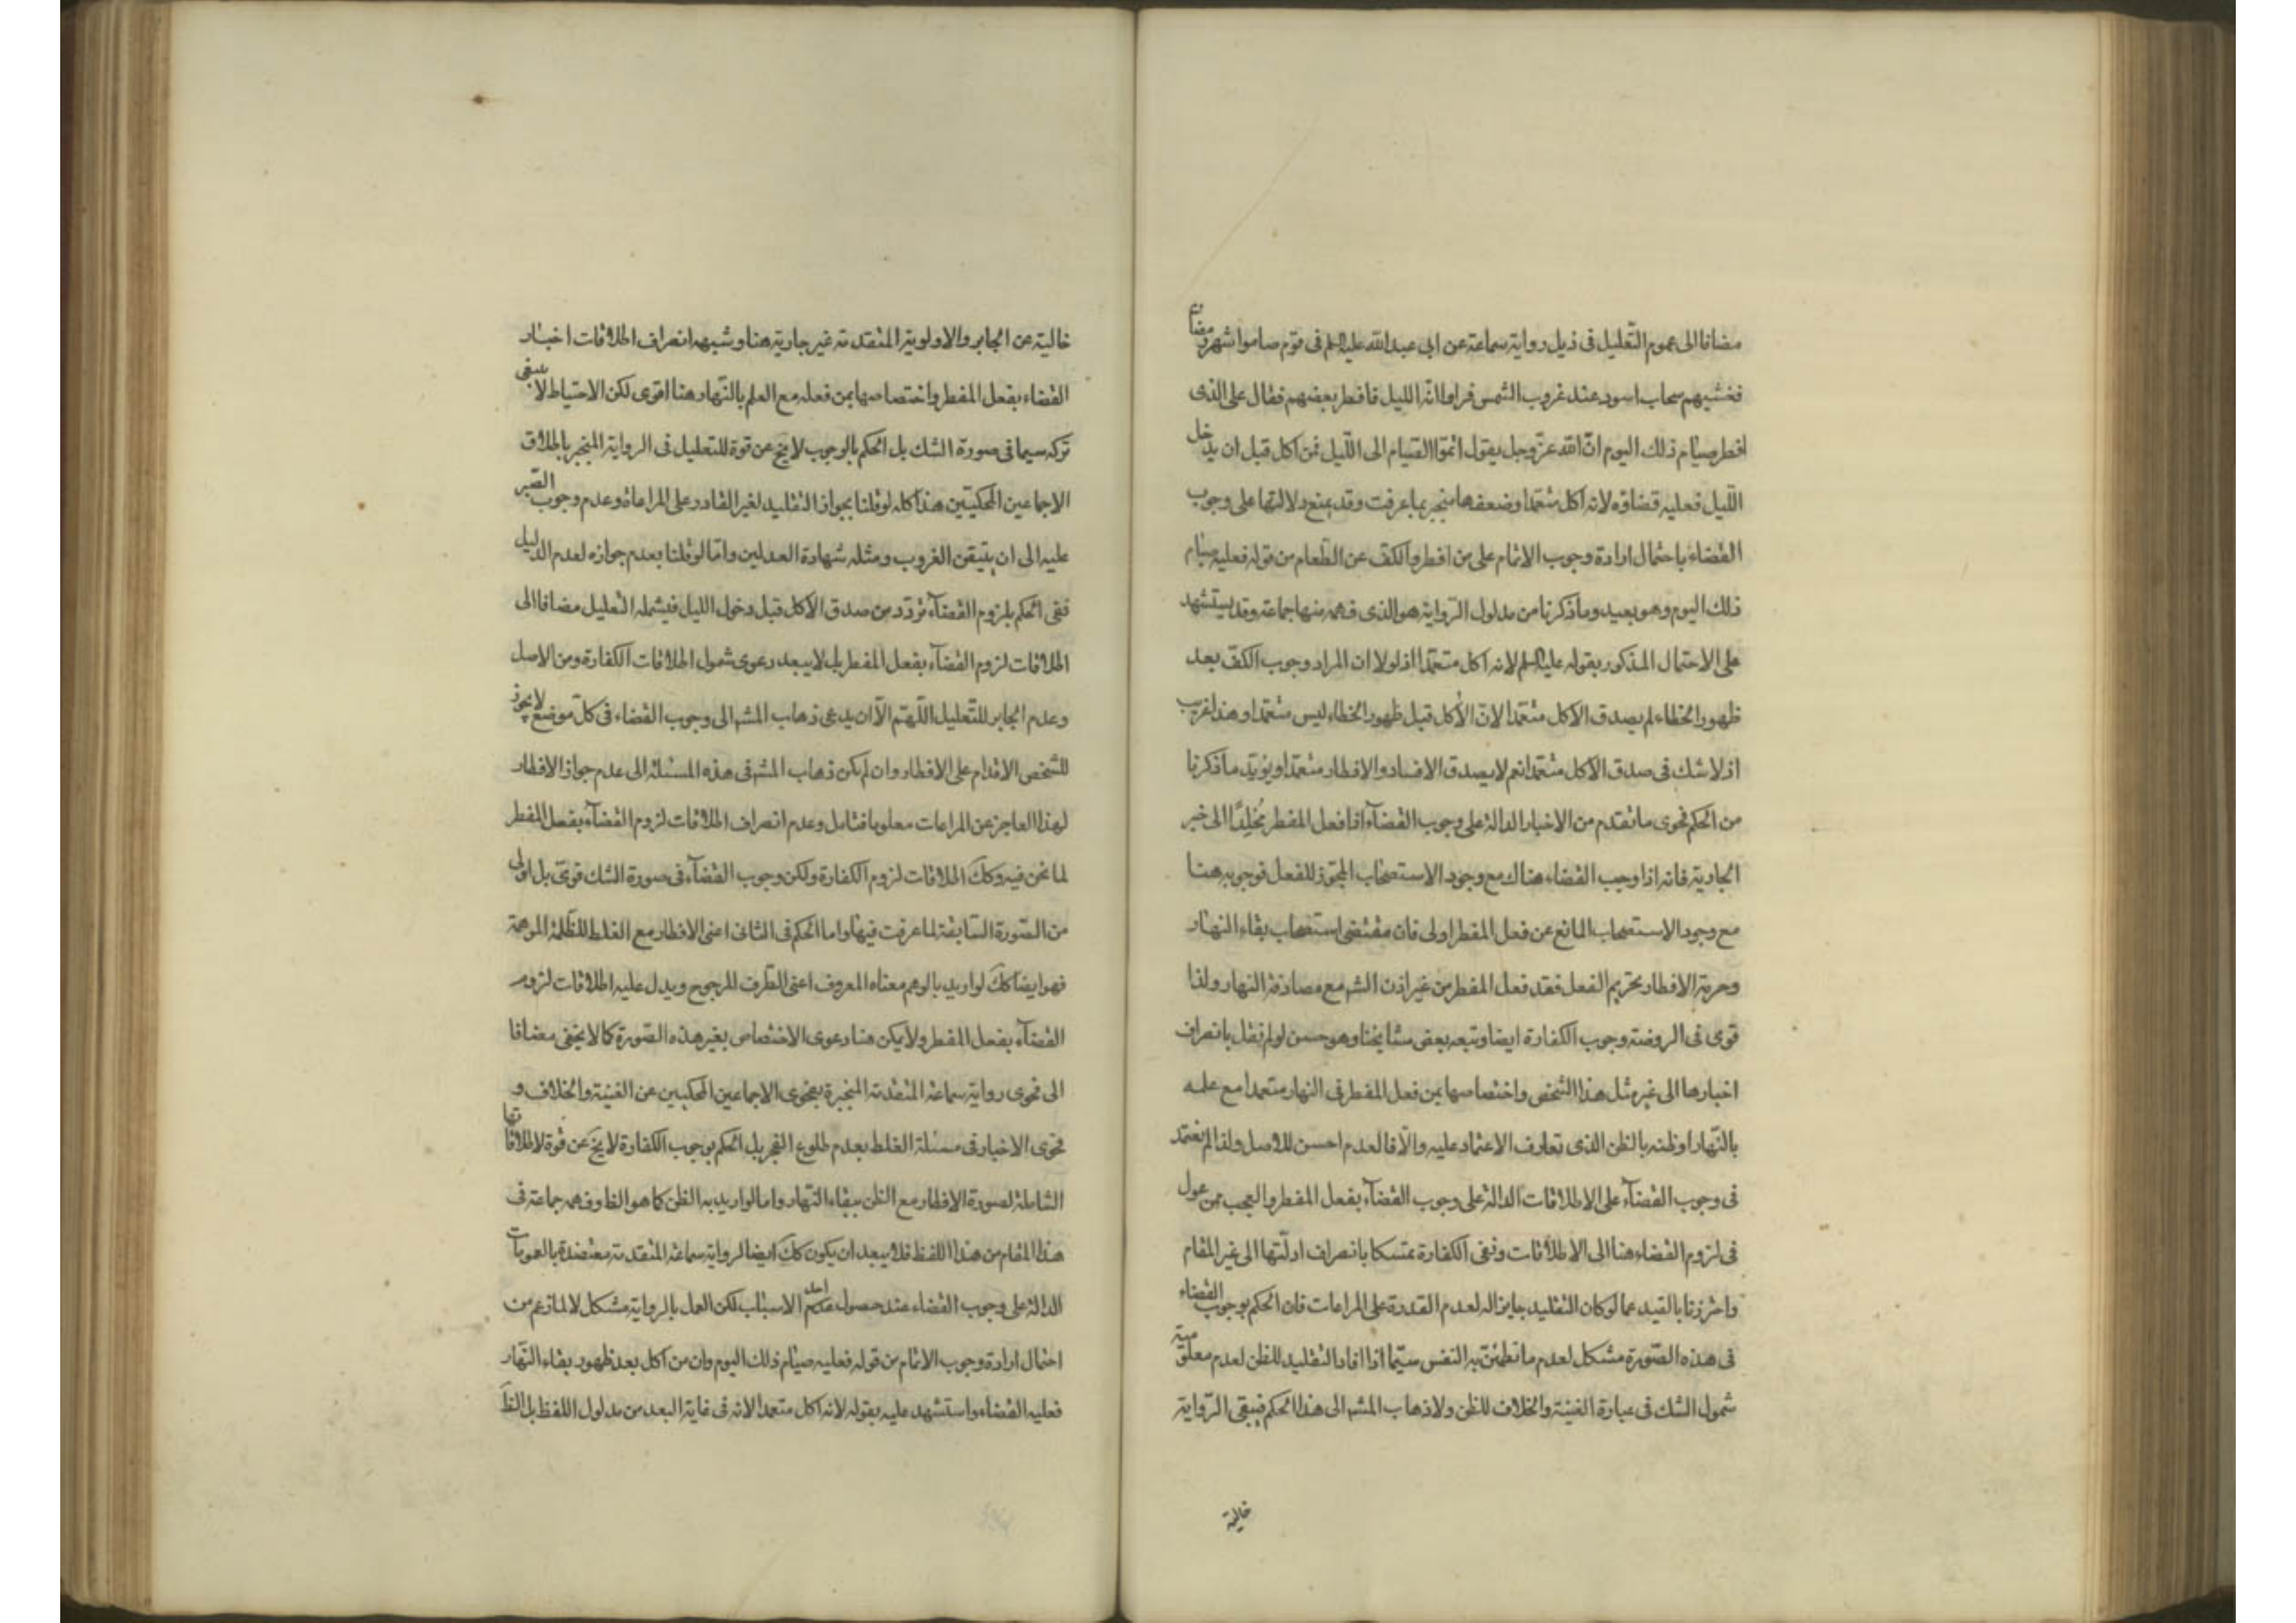 مضافا الى عموم التعليل فى ذيل رواية سماعة عن ابى عبدالله عليه السلم فى قوم صاموا شهر رمضان
فغشيهم سحاب اسود عند غروب الشمس فراوا انه الليل فافطر بعضهم فقال على الذى
افطر صيام ذلك اليوم انّ الله عزّ وجل يقول اتمّوا الصيام الى اللّيل فمن اكل قبل ان يدخل
اللّيل فعليه قضاؤه لانه اكل متعمّدا وضعفها منجبر بما عرفت وقد يمنع دلالتها على وجوب
القضاء باحتمال ارادة وجوب الاتمام على من افطر والكفّ عن الطّعام من قوله فعليه صيام
ذلك اليوم وهو بعيد وما ذكرنا من مدلول الرّواية هو الذى فهمه منها جماعة وقد يستشهد
على الاحتمال المذكور بقوله عليه السلم لانه اكل متعمّدا اذ لولا ان المراد وجوب الكفّ بعد
ظهور الخطاء لم يصدق الاكل متعمّدا لانّ الأكل قبل ظهور الخطاء ليس متعمّدا وهذا غريب
اذ لا شك فى صدق الاكل متعمّدا نعم لا يصدق الافساد والافطار متعمّدا ويؤيّد ما ذكرنا
من الحكم فحوى ما تقدم من الاخبار الدالة على وجوب القضآء اذا فعل المفطر مُخلِدًا الى خبر
الجارية فانه اذا وجب القضاء هناك مع وجود الاستصحاب المجوّز للفعل فوجوبه هنا
مع وجود الاستصحاب المانع عن فعل المفطر اولى فان مقتضى استصحاب بقاء النهار
وحرمة الافطار تحريم الفعل فقد فعل المفطر من غير اذن الشر مع مصادفة النهار ولذا
قوى فى الروضة وجوب الكفارة ايضا وتبعه بعض مشايخنا وهو حسن لو لم نقل بانصراف
اخبارها الى غير مثل هذا الشخص واختصاصها بمن فعل المفطر فى النهار متعمدا مع علمه
بالنّهار او ظنه بالظن الذى تعارف الاعتماد عليه والّا فالعدم احسن للاصل ولذا لم نعتمد
فى وجوب القضآء على الاطلاقات الدالة على وجوب القضآء بفعل المفطر والعجب ممن عول
فى لزوم القضاء هنا الى الاطلاقات ونفى الكفارة متمسكا بانصراف ادلّتها الى غير المقام
واحترزنا بالقيد عما لو كان التقليد جايزا له لعدم القدرة على المراعات فان الحكم بوجوب القضاء
فى هذه الصّورة مشكل لعدم ما تطمئنّ به النفس سيّما اذا افاد التقليد للظن لعدم معلوميّة
شمول الشك فى عبارة الغنية والخلاف للظن ولا ذهاب المشر الى هذا الحكم فيبقى الرّواية
خالية
خالية عن الجابر والاولوية المتقدمة غير جارية هنا وشبهه انصراف اطلاقات اخبار
القضاء بفعل المفطر واختصاصها بمن فعله مع العلم بالنّهار هنا اقوى لكن الاحتياط لا ينبغى
تركه سيما فى صورة الشك بل الحكم بالوجوب لا يخ عن قوة للتعليل فى الرواية المنجبر باطلاق
الاجماعين المحكيّين هذا كله لو قلنا بجواز التقليد لغير القادر على المراعاة وعدم وجوب الصّبر
عليه الى ان يتيقن الغروب ومثله شهادة العدلين وامّا لو قلنا بعدم جوازه لعدم الدّليل
ففى الحكم بلزوم القضآء تردّد من صدق الأكل قبل دخول الليل فيشمله التعليل مضافا الى
اطلاقات لزوم القضآء بفعل المفطر بل لا يبعد دعوى شمول اطلاقات الكفارة ومن الاصل
وعدم الجابر للتّعليل اللّهمّ الّا ان يدعى ذهاب المشر الى وجوب القضاء فى كل موضع لا يجوز
للشخص الاقدام على الافطار وان لم يكن ذهاب المشر فى هذه المسئلة الى عدم جواز الافطار
لهذا العاجز عن المراعات معلوما فتامل وعدم انصراف اطلاقات لزوم القضآء بفعل المفطر
لما نحن فيه وكك اطلاقات لزوم الكفارة ولكن وجوب القضآء فى صورة الشك قوىّ بل اولى
من الصّورة السّابقة لما عرفت فيها واما الحكم فى الثانى اعنى الافطار مع الغلط للظّلمة الموهمة
فهو ايضا كك لو اريد بالوهم معناه المعروف اعنى الطّرف المرجوح ويدل عليه اطلاقات لزوم
القضآء بفعل المفطر ولا يمكن هنا دعوى الاختصاص بغير هذه الصّورة كما لا يخفى مضافا
الى فحوى رواية سماعة المتقدمة المنجبرة بفحوى الاجماعين المحكيين عن الغنية والخلاف و
فحوى الاخبار فى مسئلة الغلط بعدم طلوع الفجر بل الحكم بوجوب الكفارة لا يخ عن قوة لاطلاقاتها
الشاملة لصورة الافطار مع الظن ببقاء النّهار واما لو اريد به الظن كما هو الظا وفهمه جماعة فى
هذا المقام من هذا اللفظ فلا يبعد ان يكون كك ايضا لرواية سماعة المتقدمة معتضدة بالعمومات
الدالة على وجوب القضاء عند حصول احد الاسباب لكن العمل بالرواية مشكل لا لما زعم من
احتمال ارادة وجوب الاتمام من قوله فعليه صيام ذلك اليوم وان من اكل بعد ظهور بقاء النّهار
فعليه القضاء واستشهد عليه بقوله لانه اكل متعمدا لانه فى غاية البعد من مدلول اللفظ بل الظّ